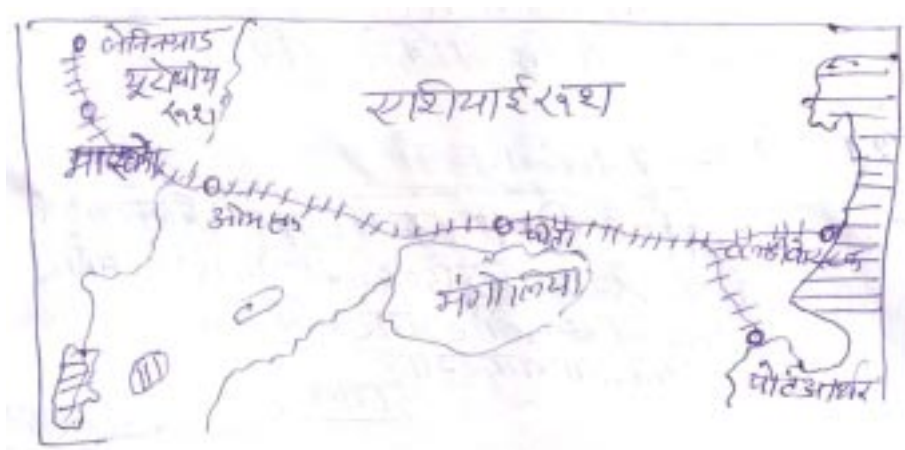 लेनिनग्राड
यूरोपीय
रूश
एशियाई रूश
मास्को
ओमस्क
चिता
मंगोलिया
पोर्टआर्थर